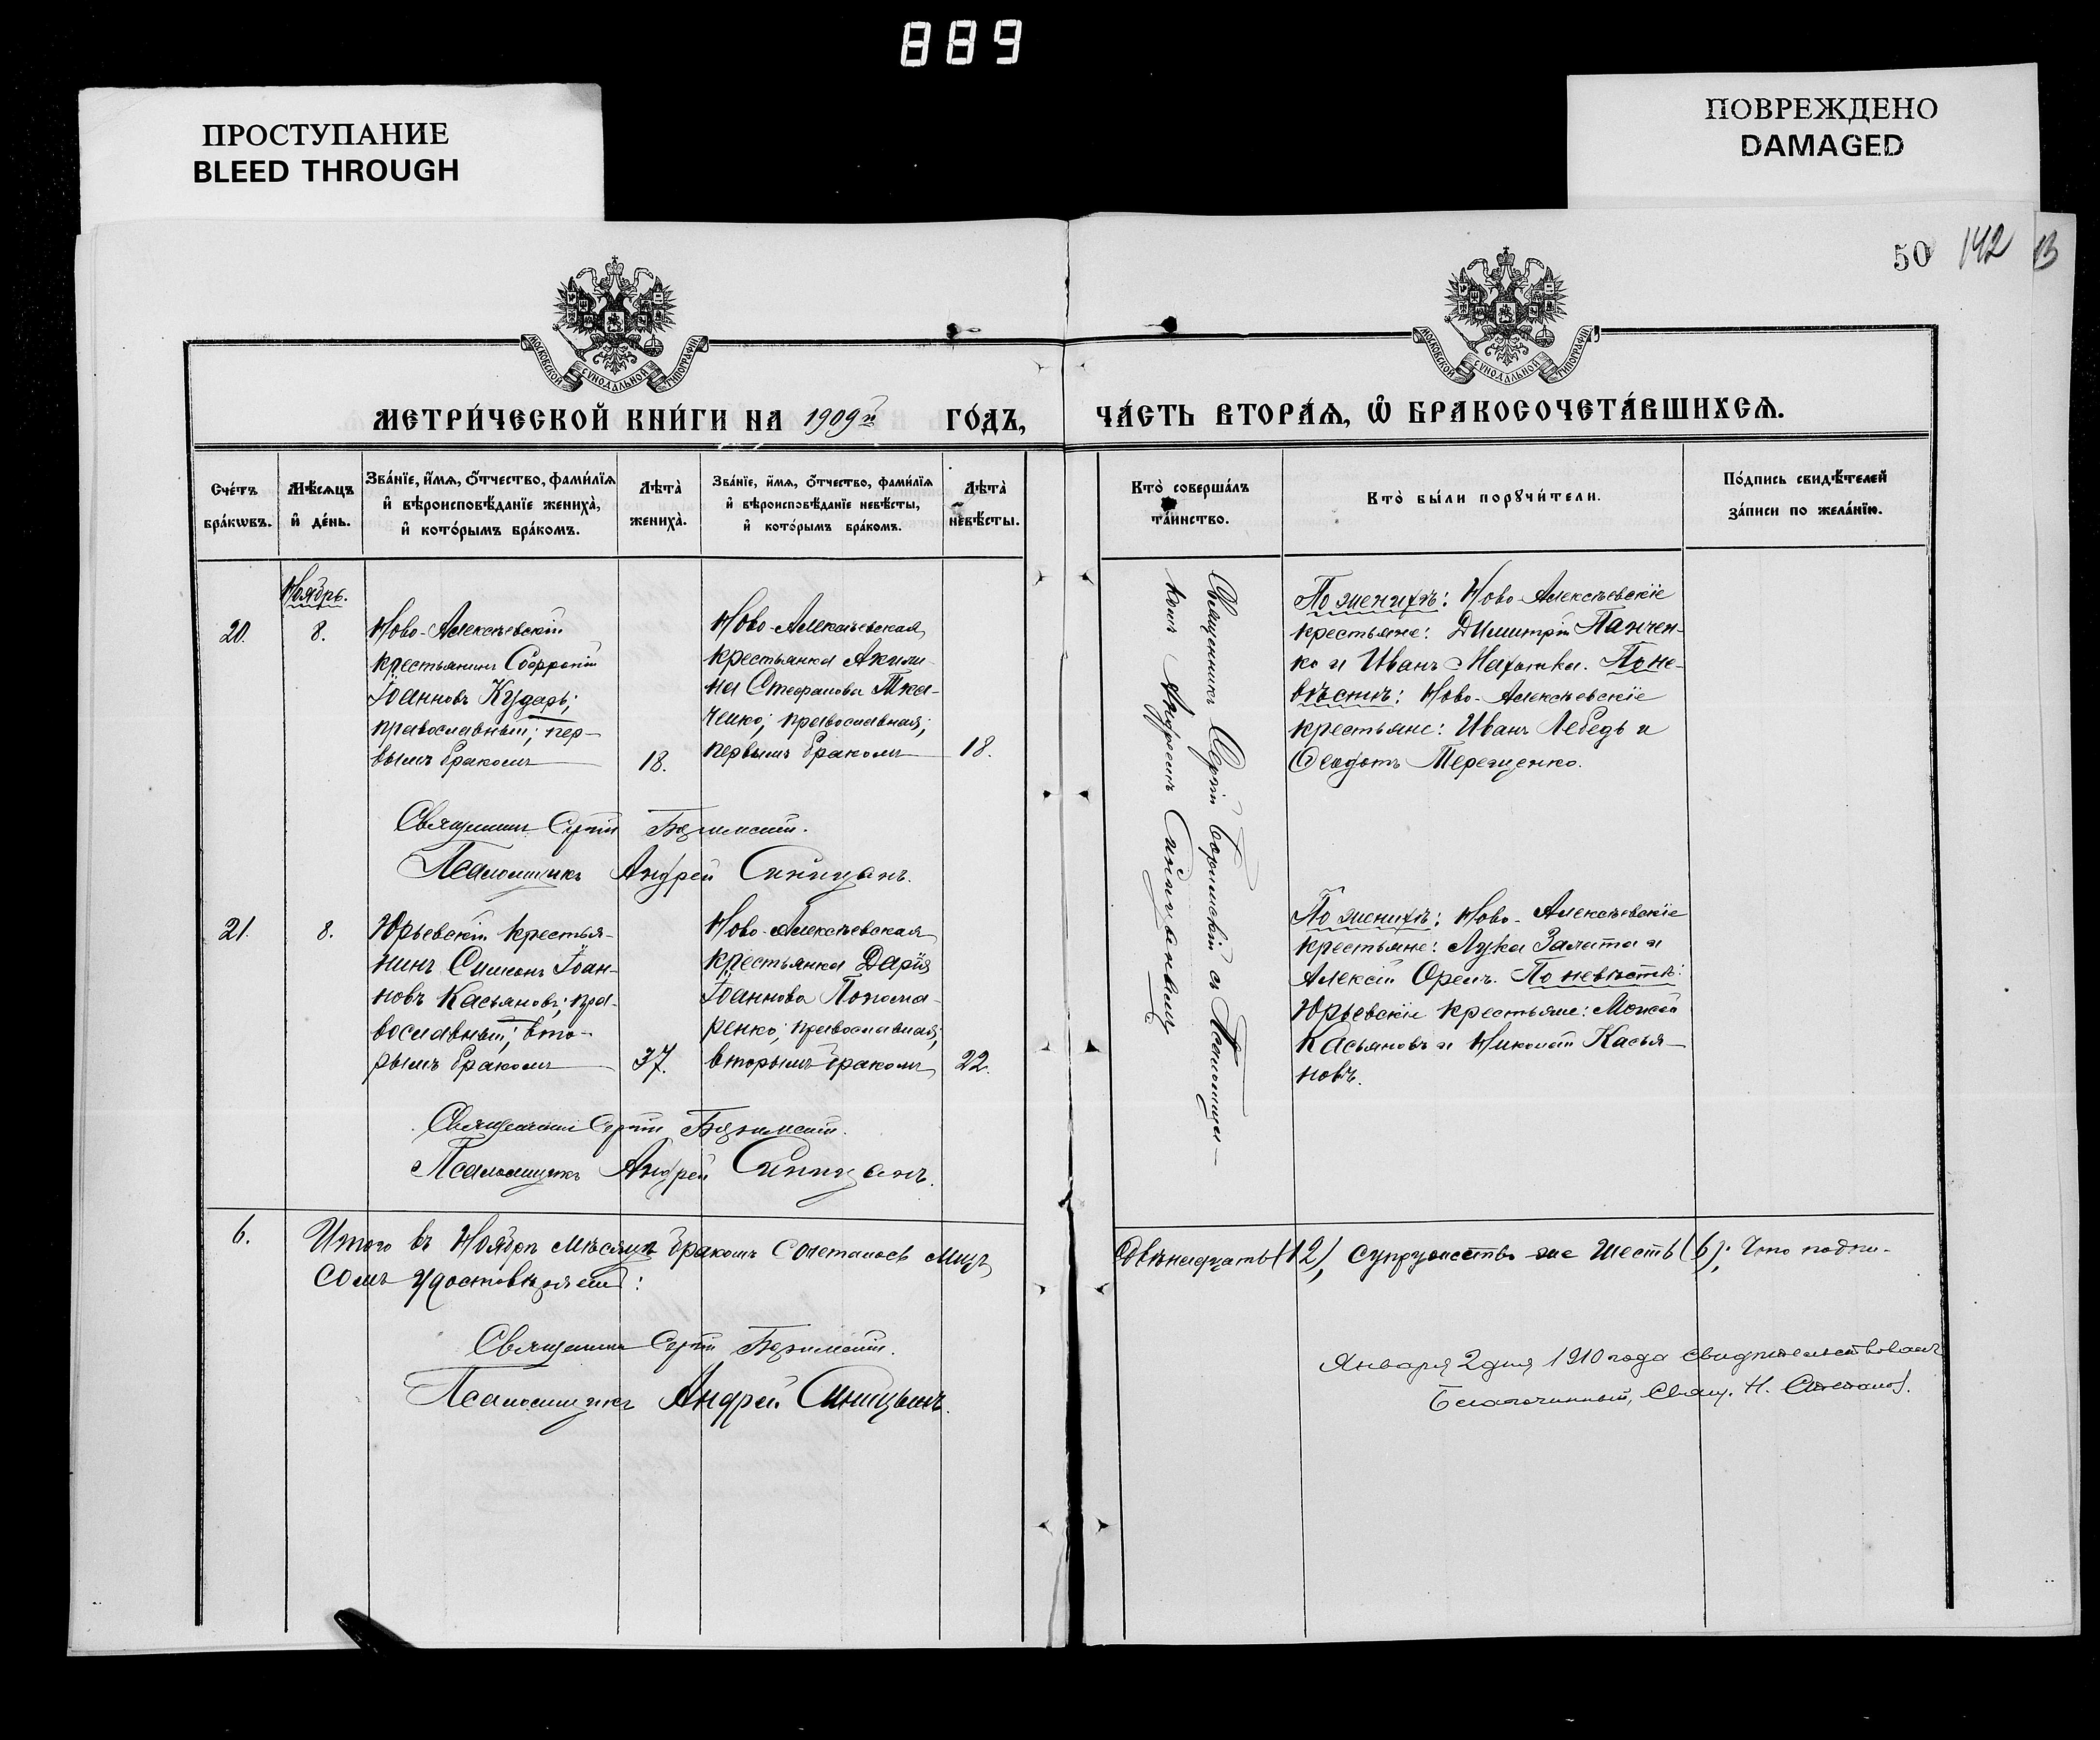 889
ПРОСТУПАНИЕ
BLEED THROUGH
ПОВРЕЖДЕНО
DAMAGED
50 142
МОСКОВСКОЙ СУНОДАЛЬНОЙ ТИПОГРАФІИ
МОСКОВСКОЙ СУНОДАЛЬНОЙ ТИПОГРАФІИ
МЕТРИ́ЧЕСКОЙ КНИ́ГИ НА 1909й ГО́ДЪ,
ЧА́СТЬ ВТОРА́Ѧ, Ѡ҆ БРАКОСОЧЕТА́ВШИХСѦ.
Сче́тъ
бра́кѡвъ.
Мѣ́сѧцъ
и҆ де́нь.
Зва́нїе, и҆́мѧ, ѻ҆́тчество, фами́лїѧ
и҆ вѣроисповѣ́данїе жениха̀,
и҆ кото́рымъ бра́комъ.
Лѣта̀
жениха̀.
Зва́нїе, и҆́мѧ, ѻ҆́тчество, фами́лїѧ
и҆ вѣроисповѣ́данїе невѣ́сты,
и҆ кото́рымъ бра́комъ.
Лѣта̀
невѣ́сты.
Кто̀ соверша́лъ
та́инство.
Кто̀ бы́ли порꙋчи́тели.
По́дпись свидѣ́телей
за́писи по жела́нїю.
Ноябрь.
20.
8.
Ново-Алексѣевскій
крестьянинъ Софроній
Іоанновъ Кударь;
православный; пер-
вымъ бракомъ
18.
Ново-Алексѣевская
крестьянка Акили-
на Стефанова Тка-
ченко; православная;
первымъ бракомъ
18.
Священникъ Сергій Боримскій съ Псаломщи-
комъ Андреемъ Синицанымъ
По женихѣ: Ново-Алексѣевскіе
крестьяне: Димитрій Панчен-
ко и Иванъ Махотка. По не-
вѣстѣ: Ново-Алексѣевскіе
крестьяне: Иванъ Лебедь и
Ѳеодотъ Терещенко.
Священникъ Сергій Боримскій.
Псаломщикъ Андрей Синицанъ.
21.
8.
Юрьевскій крестья-
нинъ Симеонъ Іоан-
новъ Касьяновъ; пра-
вославный; вто-
рымъ бракомъ
37.
Ново-Алексѣевская
крестьянка Дарія
Іоаннова Понома-
ренко; православная;
вторымъ бракомъ
22.
По женихѣ: Ново-Алексѣевскіе
крестьяне: Лука Залата и
Алексій Орелъ. По невѣстѣ:
Юрьевскіе крестьяне: Моисей
Касьяновъ и Николай Касья-
новъ.
Священникъ Сергій Боримскій.
Псаломщикъ Андрей Синицанъ.
6.
Итого въ Ноябрѣ мѣсяцѣ бракомъ сочеталось лицъ
Двѣнадцать (12), супружествъ же шесть (6); Что подпи-
сомъ удостовѣряемъ:
Священникъ Сергій Боримскій.
Псаломщикъ Андрей Синицынъ.
Января 2 дня 1910 года свидѣтельствовалъ
Благочинный, Свящ. Н. Степановъ.